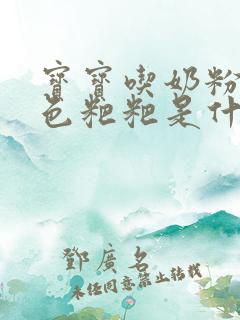 寶寶喫奶粉
色粑粑是什
鄧廣名
未经同意禁止转载